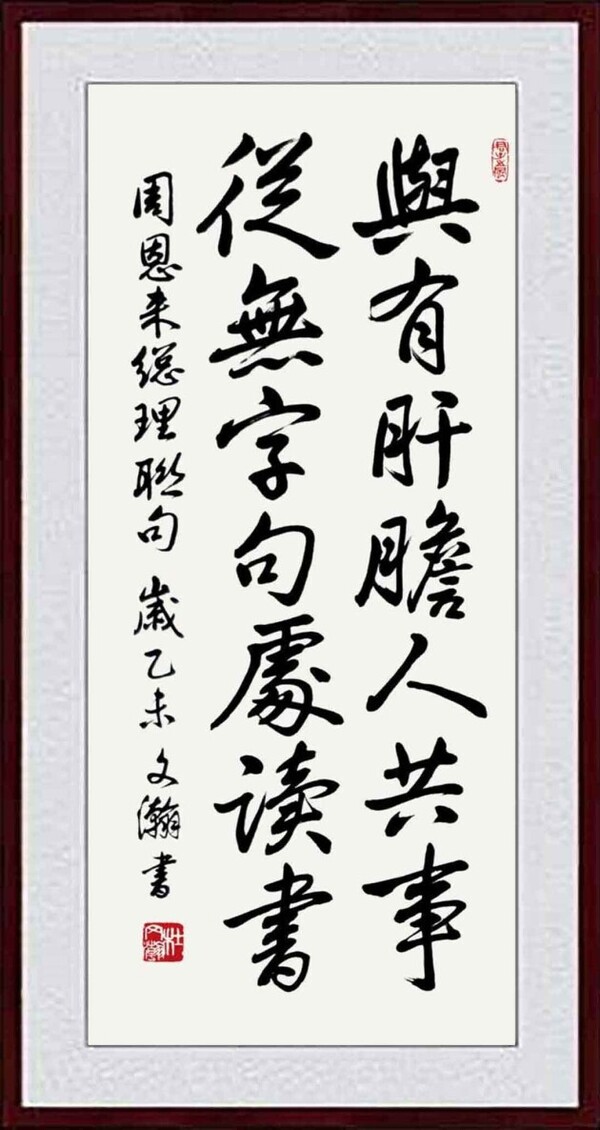 與有肝膽人共事
從無字句處读書
周恩来總理联句 歲乙未 文瀚書